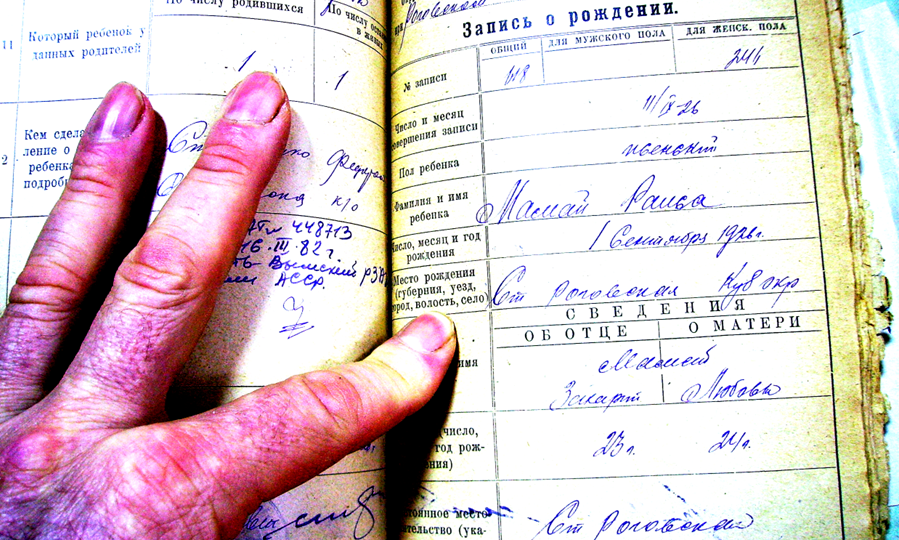 По числу родившихся
По числу
в живых
11
Который ребенок у
данных родителей
1
1
2
Кем сдела
ление о
ребенка
подроб
448713
III. 82 г.
Вымский
АССР.
Роговской
Запись о рождении.
ОБЩИЙ
ДЛЯ МУЖСКОГО ПОЛА
ДЛЯ ЖЕНСК. ПОЛА
№ записи
244
Число и месяц
совершения записи
11/IX-26
Пол ребенка
женский
Фамилия и имя
ребенка
Мамай Раиса
Число, месяц и год
рождения
1 Сентября 1926 г.
Место рождения
(губерния, уезд,
город, волость, село)
Ст Роговская Куб окр
СВЕДЕНИЯ
ОБ ОТЦЕ
О МАТЕРИ
имя
Мамай
Захарт
Любовь
(число,
год рож-
ения)
23 г.
24 г.
место
ательство (ука-
Ст Роговская